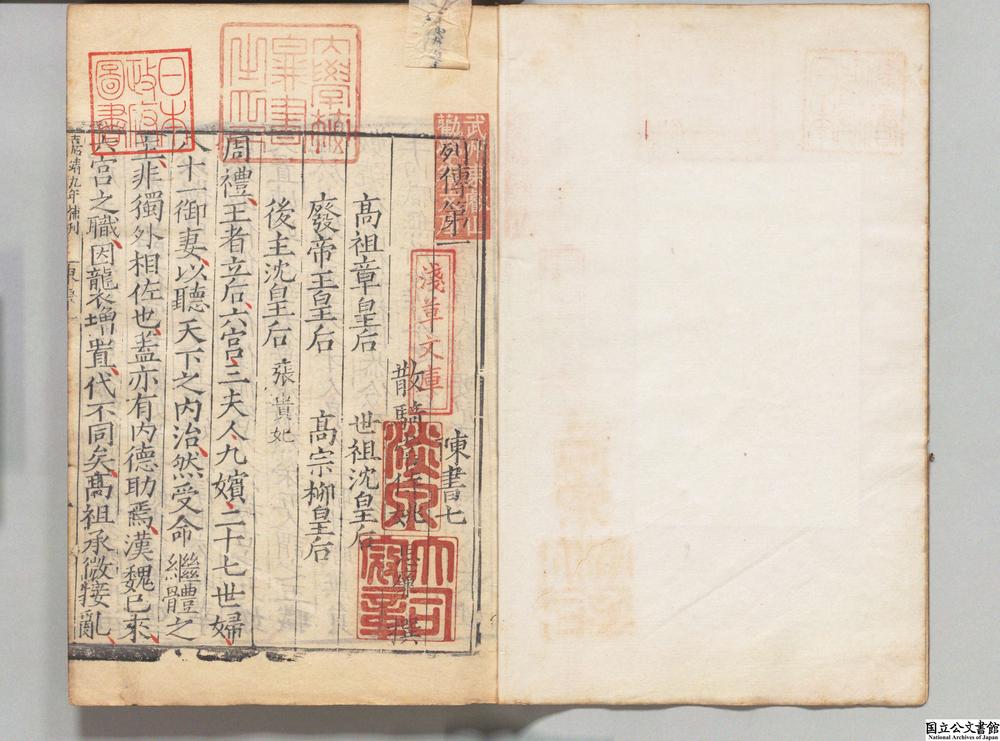 列傳第一　陳書七
散騎常侍姚思廉撰
高祖章皇后　世祖沈皇后
廢帝王皇后　高宗柳皇后
後主沈皇后　張貴妃
周禮王者立后六宮三夫人九嬪二十七世婦
八十一御妻以聽天下之内治然受命繼體之
主非獨外相佐也蓋亦有内德助焉漢魏已來
六宮之職因襲增置代不同矣高祖承微接亂
嘉靖九年補刊
日本政府圖書
淺草文庫
国立公文書館
National Archives of Japan